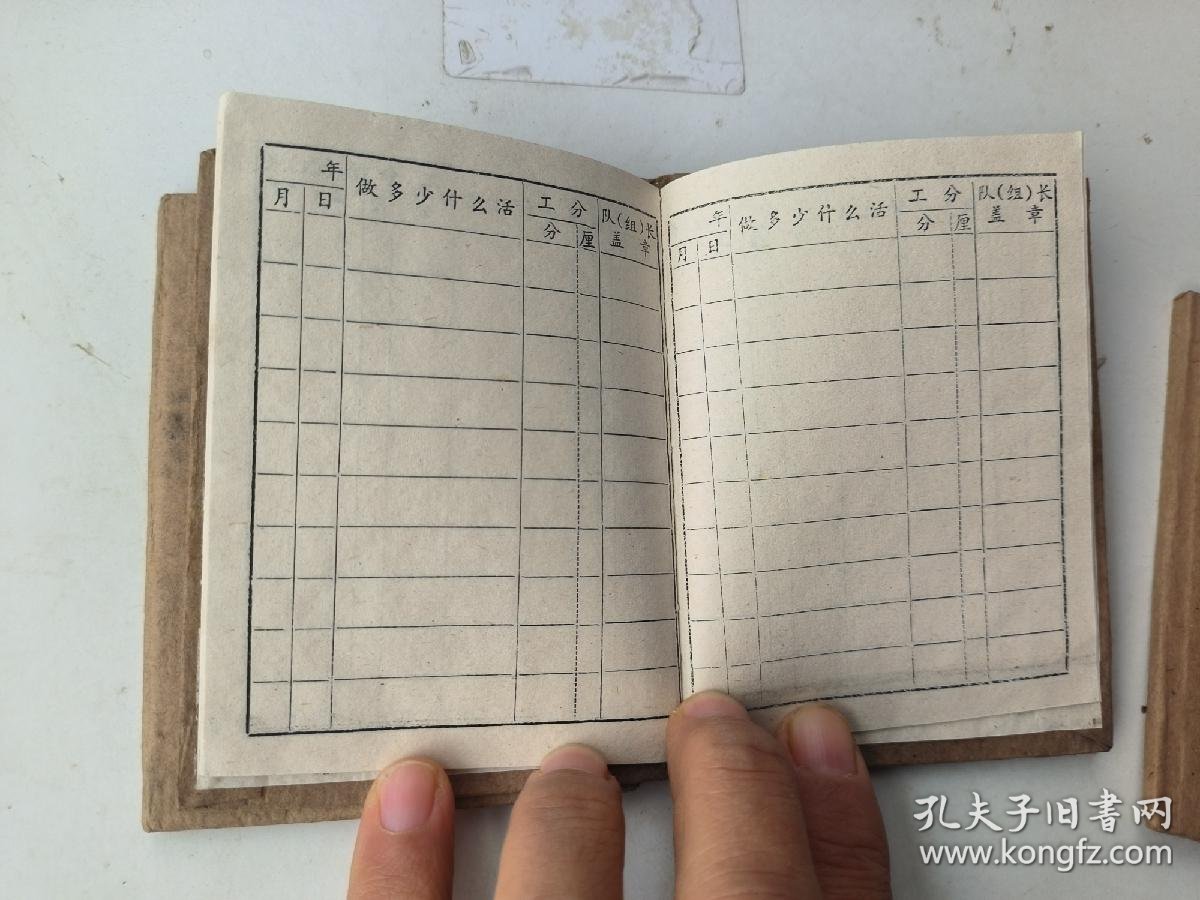 年
月 日
做多少什么活
工分
分 厘
队(组)长
盖章
年
月 日
做多少什么活
工分
分 厘
队(组)长
盖章
孔夫子旧书网
www.kongfz.com